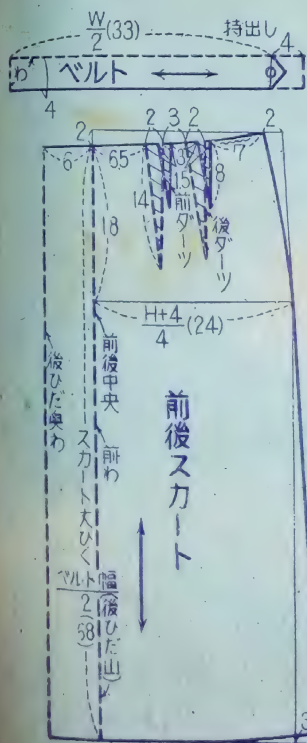 W/2(33)
持出し
4
わ
ベルト
4
2
2 3 2
2
6
6.5
3.5
7
14
15
8
前ダーツ
後ダーツ
18
H+4/4(24)
後ひだ奥わ
前後中央
前わ
前後スカート
スカート丈ひく
ベルト幅/2(58)
(後ひだ山)
3